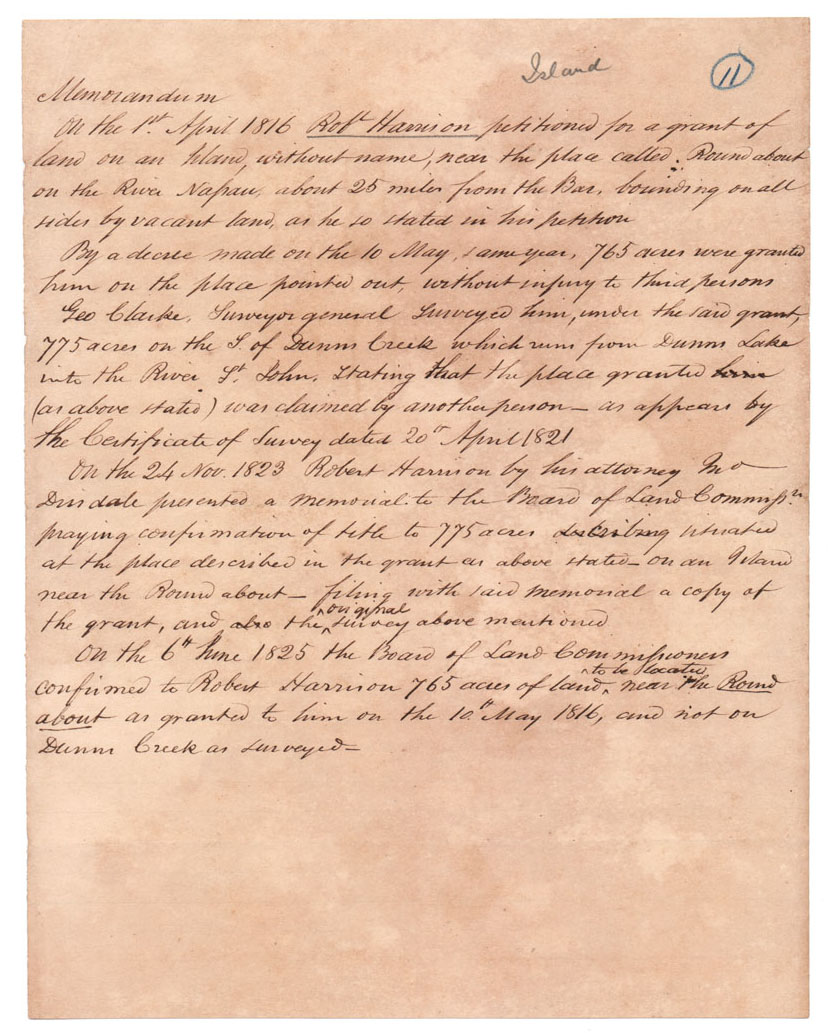 Island
11
Memorandum
On the 1st. April 1816 Robt Harrison petitioned for a grant of
land on an Island, without name, near the place called. Round about
on the River Napau, about 25 miles from the Bar, bounding on all
sides by vacant land, as he so stated in his petition
By a decree made on the 10 May, same year, 765 acres were granted
him on the place pointed out, without injury to third persons
Geo Clarke, Surveyor general Surveyed him, under the said grant,
775 acres on the S. of Dunns Creek which runs from Dunns Lake
into the River St. John, stating that the place granted him
(as above stated) was claimed by another person - as appears by
the Certificate of Survey dated 20th April 1821
On the 24 Nov. 1823 Robert Harrison by his attorney Jno
Drisdale presented a memorial to the Board of Land Commissrs.
praying confirmation of title to 775 acres describing situated
at the place described in the grant as above stated - on an Island
near the Round about - filing with said memorial a copy of
the grant, and also the ^original survey above mentioned
On the 6th June 1825 the Board of Land Commissioners
confirmed to Robert Harrison 765 acres of land ^to be located near the Round
about as granted to him on the 10th May 1816, and not on
Dunns Creek as surveyed -